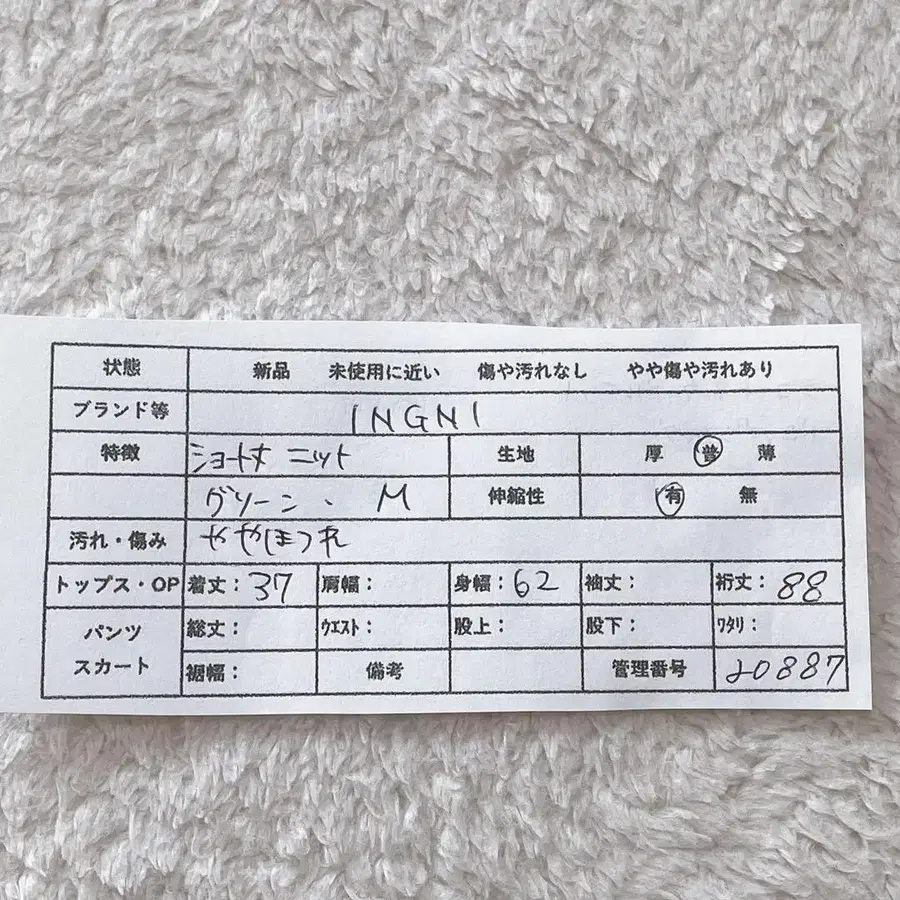 状態 新品 未使用に近い 傷や汚れなし やや傷や汚れあり
ブランド等 INGNI
特徴 ショート丈 ニット 生地 厚 普 薄
グリーン、 M 伸縮性 有 無
汚れ・傷み ややほつれ
トップス・OP 着丈：37 肩幅： 身幅：62 袖丈： 裄丈：88
パンツ 総丈： ウエスト： 股上： 股下： ワタリ：
スカート 裾幅： 備考 管理番号 20887